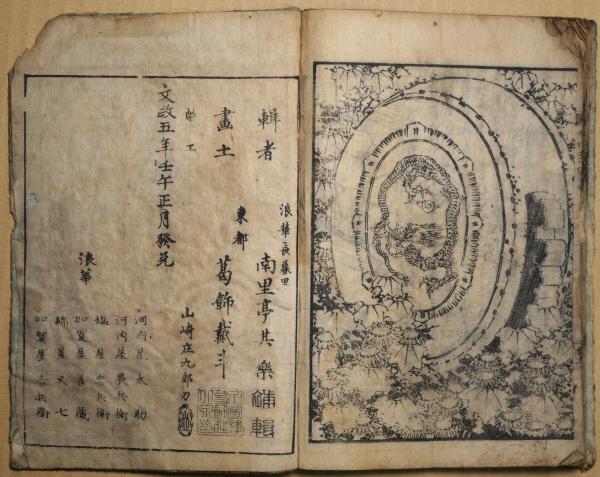 輯者
浪華長藤田
南里亭其樂
畫士
東都
葛飾戴斗
山崎庄九郎刀
文政五年壬午正月發兌
浪華
河内屋太助
河内屋長兵衛
塩屋忠兵衛
加賀屋善藏
綿屋又七
加賀屋